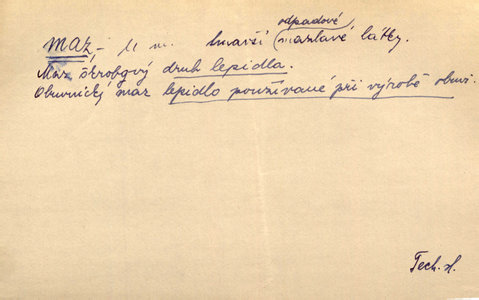 maz, -u m. tmavší (odpadové mazlavé látky.
Maz škrobový druh lepidla.
Obuvnický maz lepidlo používané při výrobě obuvi.
Tech. sl.